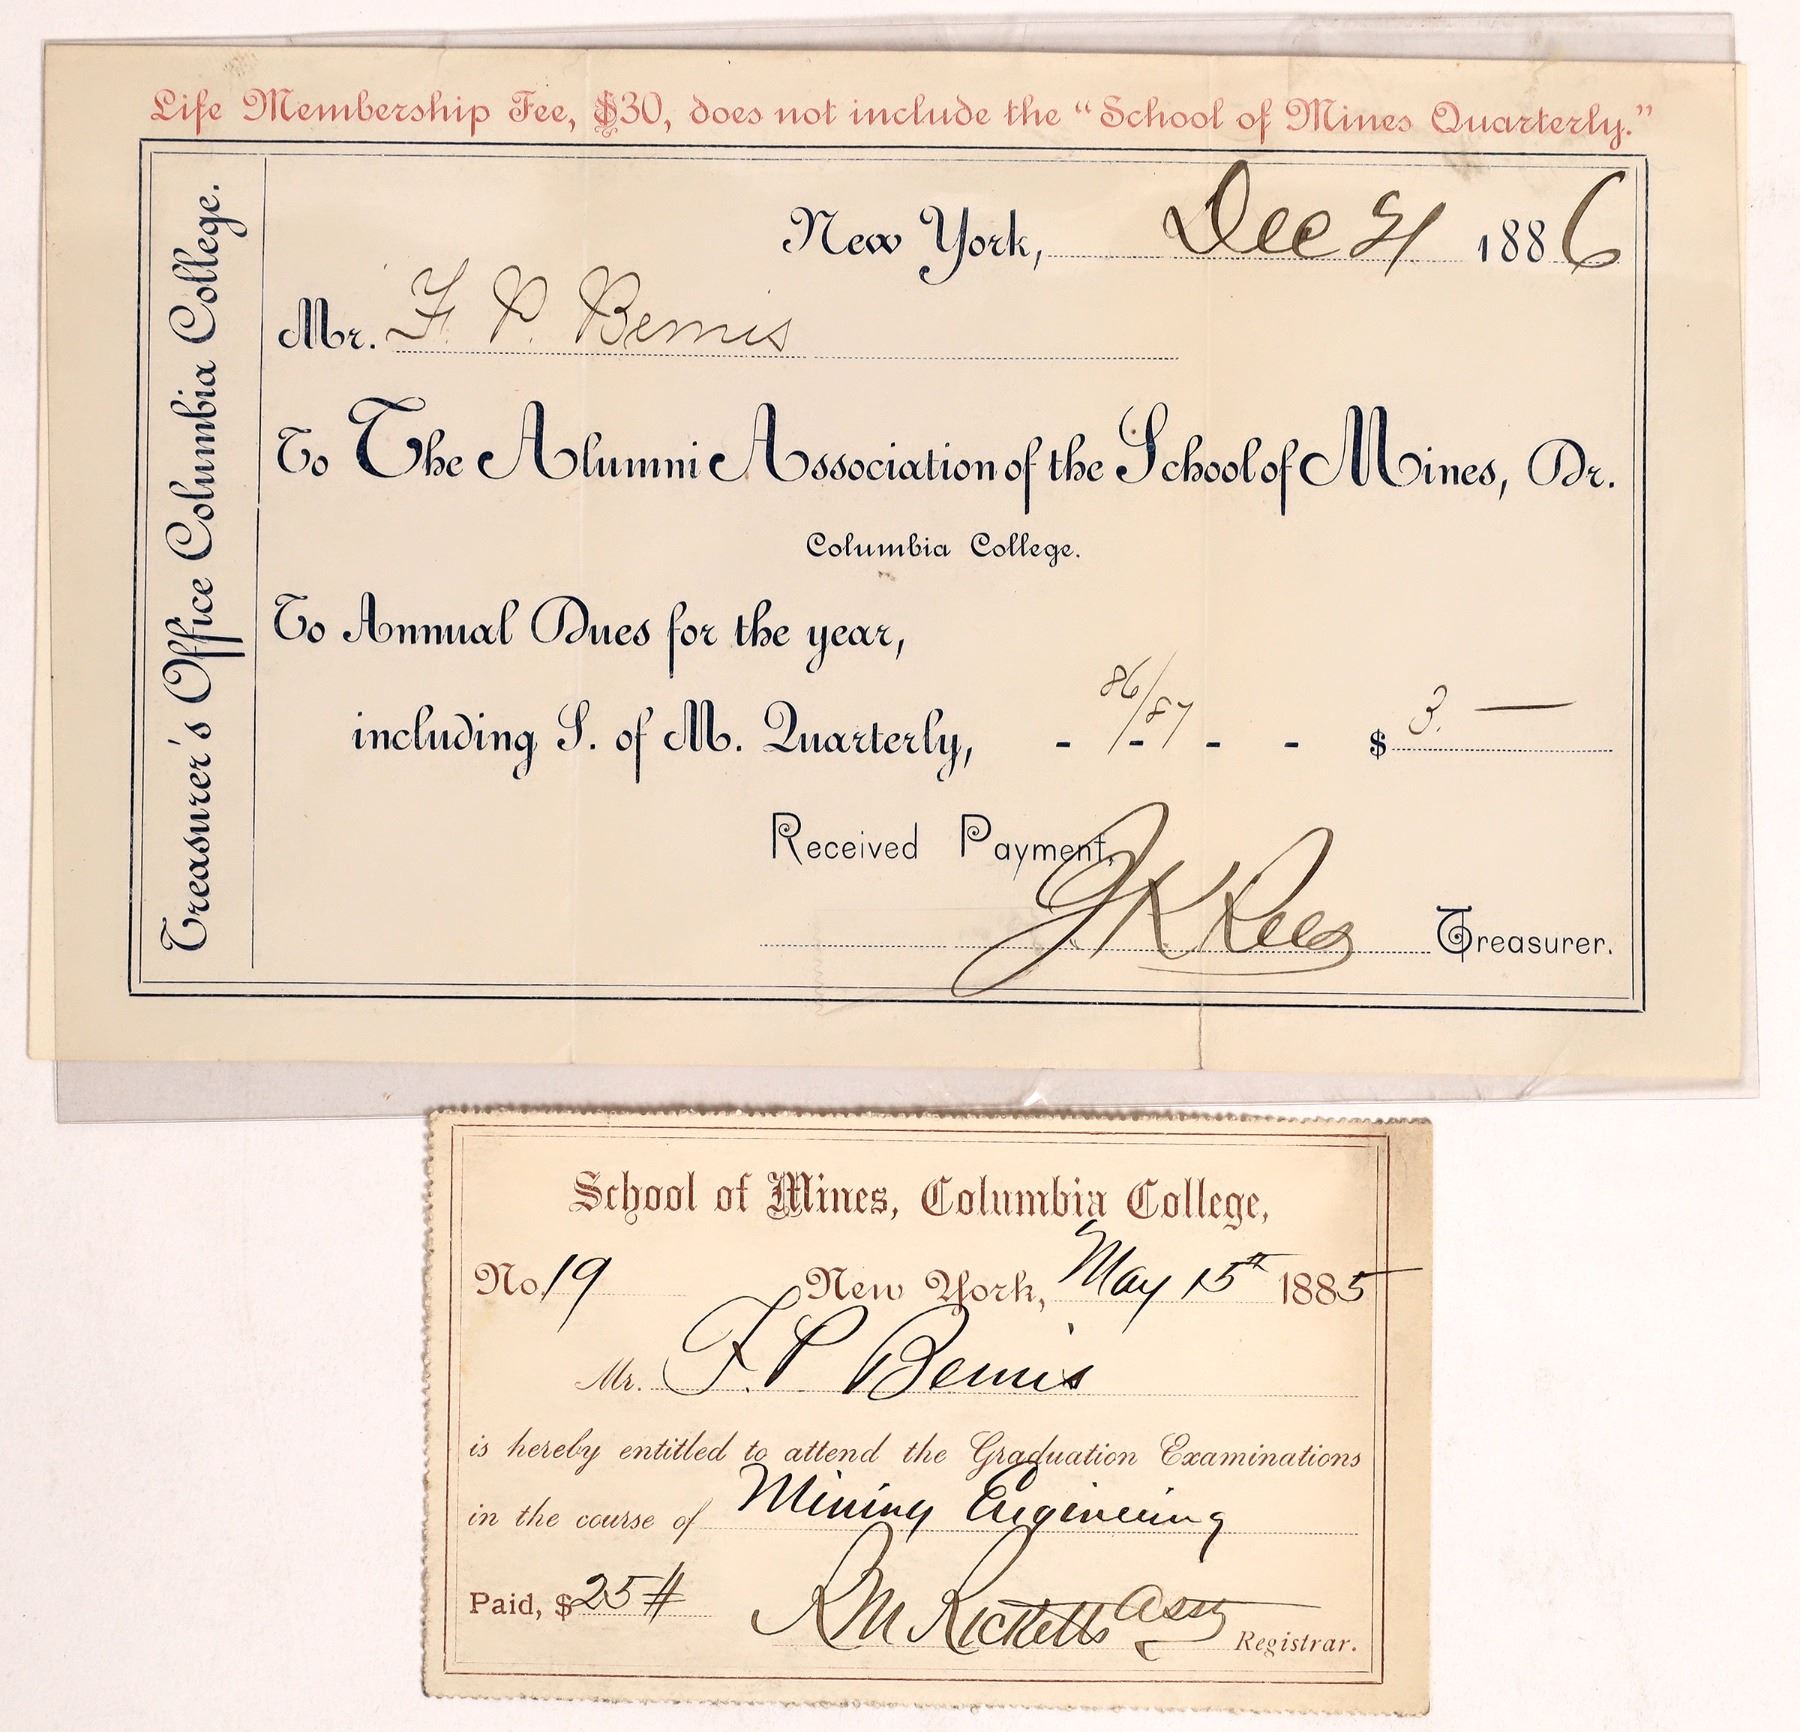 Life Membership Fee, $30, does not include the "School of Mines Quarterly."
Treasurer's Office Columbia College.
New York, Dec 21 1886
Mr. F. P. Bemis
To The Alumni Association of the School of Mines, Dr.
Columbia College.
To Annual Dues for the year,
including S. of M. Quarterly, - 86/87 - - - $ 3. —
Received Payment,
J K Rees Treasurer.
School of Mines, Columbia College,
No. 19 New York, May 15th 1885
Mr. F. P. Bemis
is hereby entitled to attend the Graduation Examinations
in the course of Mining Engineering
Paid, $ 25 # R M Ricketts Asst Registrar.